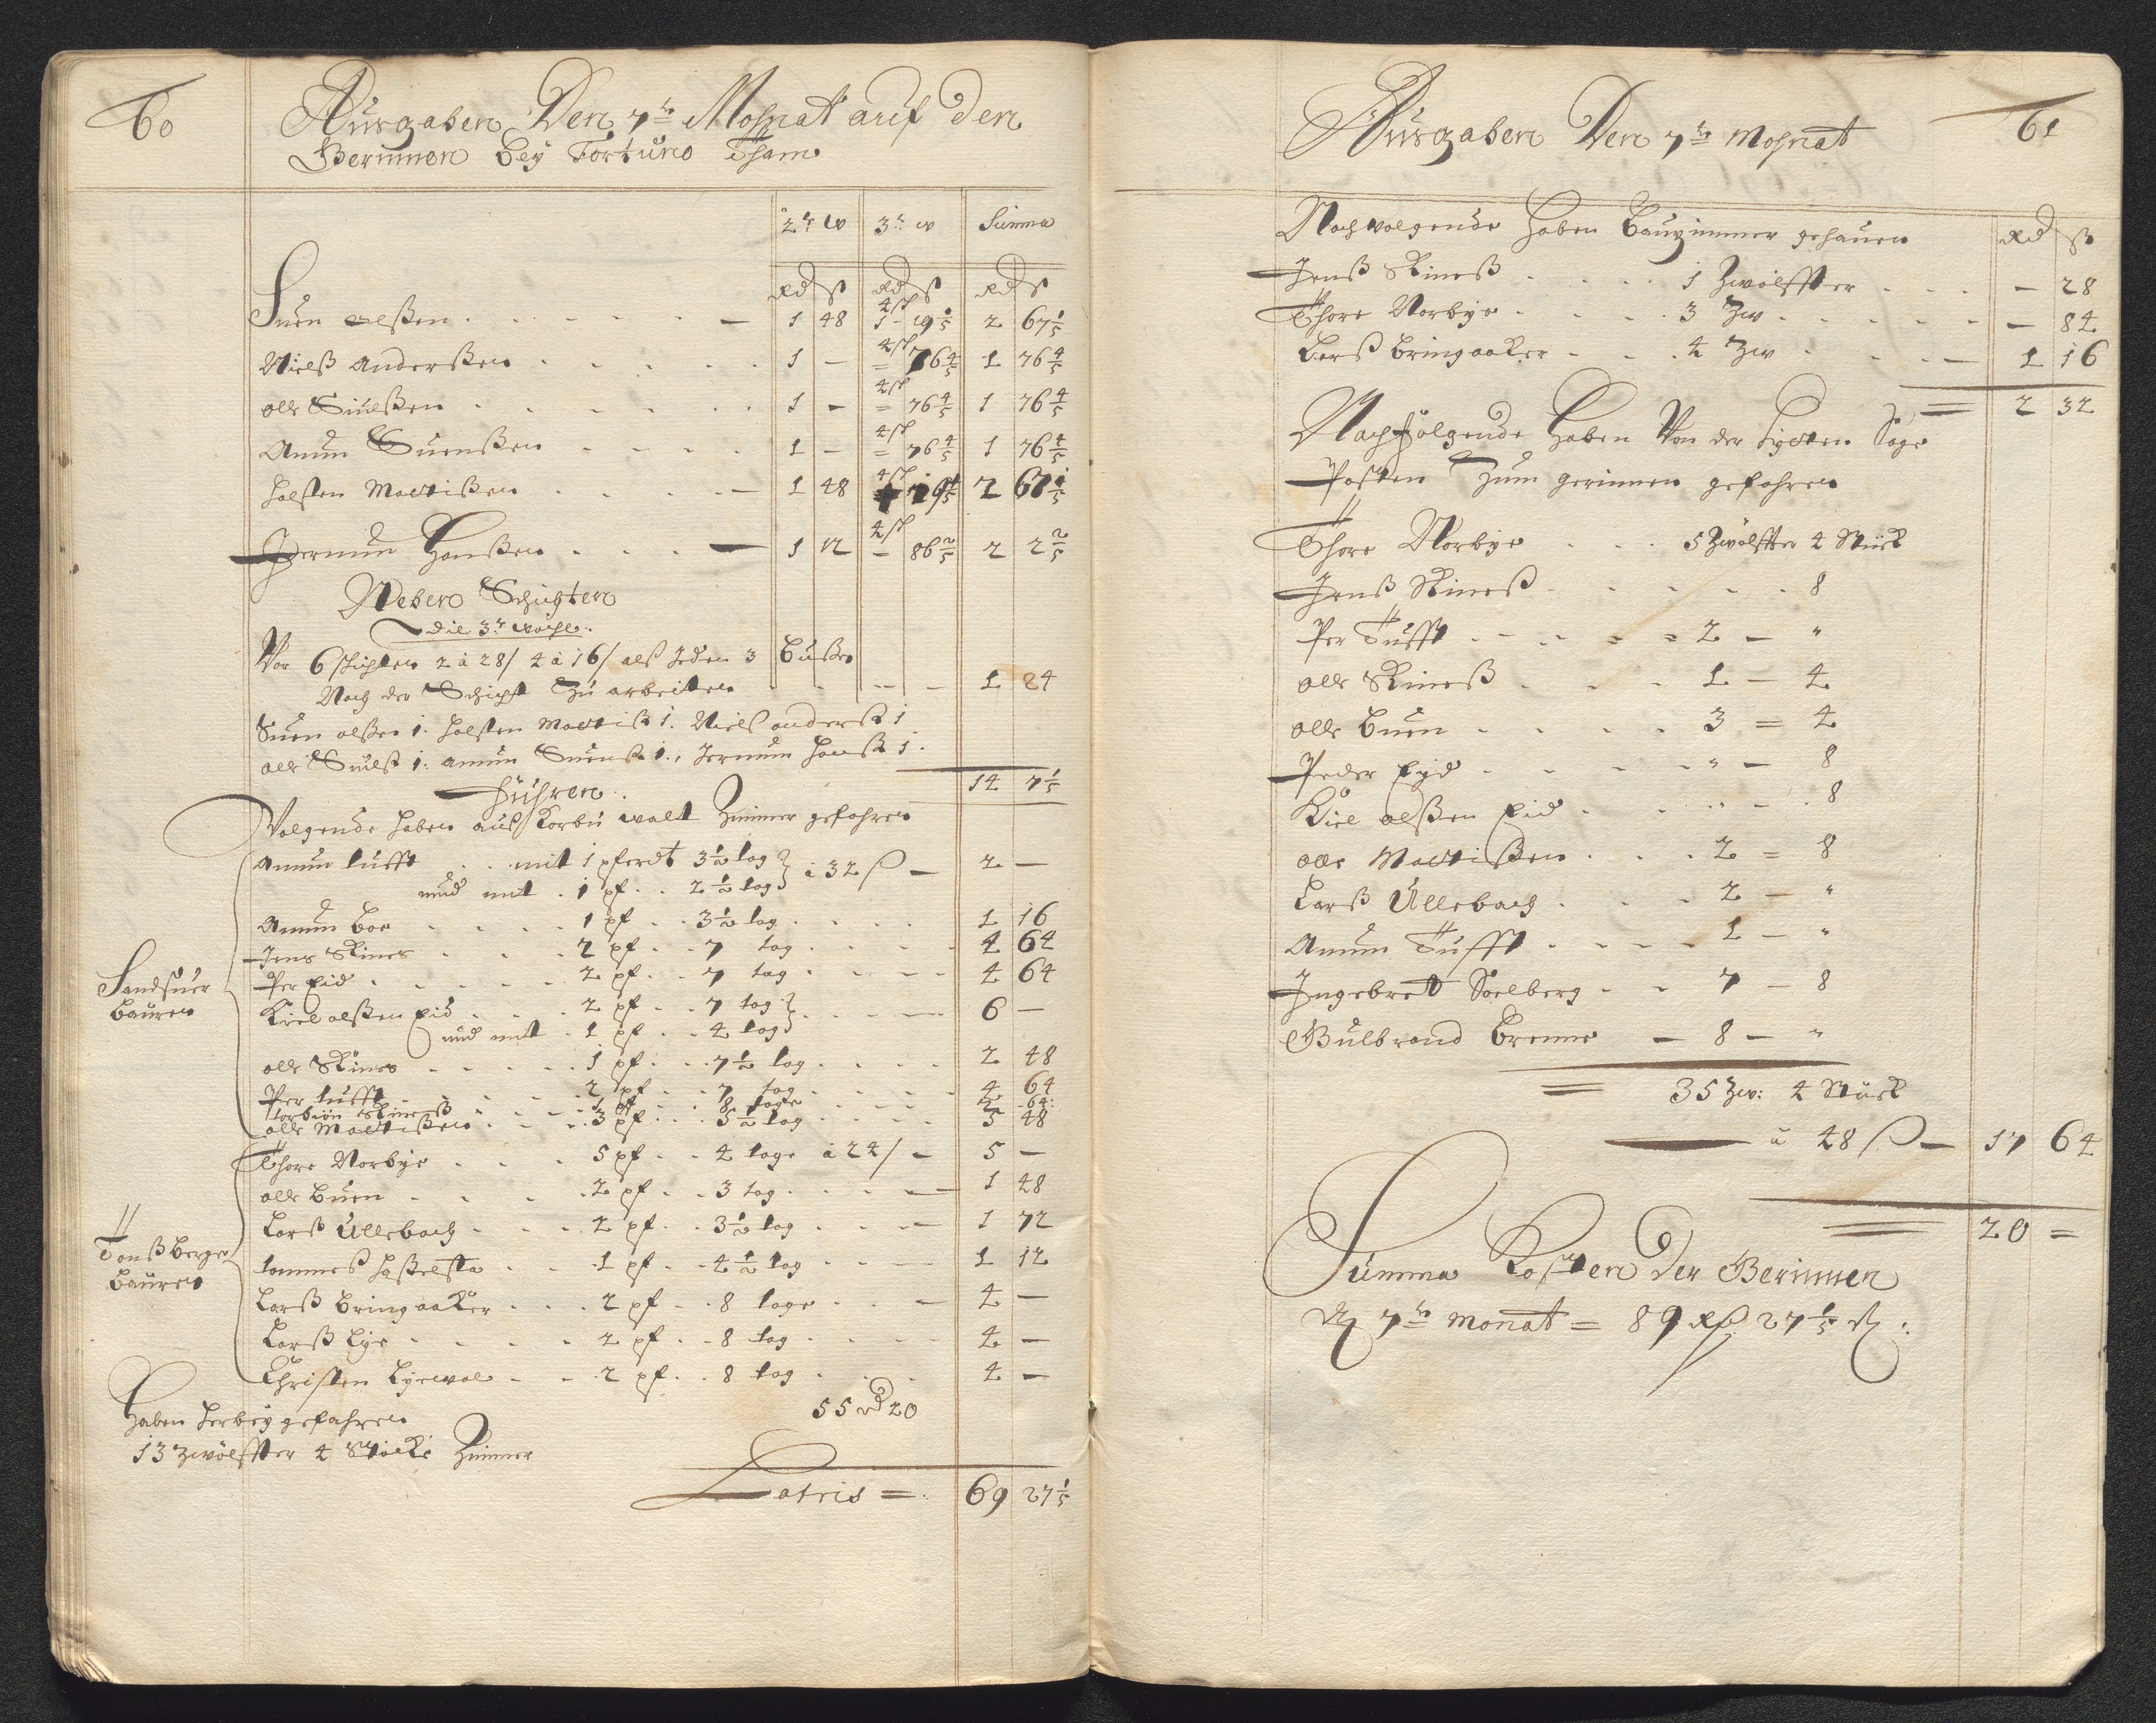 60
Ausgaben Den 7ten Mohnat auf den
Berinnen bey Fortuno Tham
2te W 3te W Summa
Rd ß Rd ß Rd ß
Suen olßen 1 48 4 sch 1 - 19 1/5 2 67 1/5
Nielß Anderßen 1 — 4 sch = 76 4/5 1 76 4/5
olle Siulßen 1 - 4 sch = 76 4/5 1 76 4/5
Amun Suenßen 1 — 4 sch = 76 4/5 1 76 4/5
Holsten Mattißen 1 48 4 sch 19 1/5 2 67 1/5
Jermun Hanßen 1 12 4 sch — 86 2/5 2 2 2/5
Neben Schichten
die 3te woche
Vor 6 schichten 2 à 28/ 4 à 16/ alß Jeden 3 Bußen
Nach der Schicht Zu arbeiten 1 24
Suen olßen 1. Holsten Mattiß 1. Niels anderß 1
olle Siulß 1. amun Suenß 1., Jermum Hanß 1.
14 7 1/5
Fuhren
Volgende haben auß Korbu walt Zimmer gefahren
Sandsuer Bauren
Amun tufft mit 1 pferdt 3 1/2 tag à 32 ß — 2 —
und mit 1 pf 2 1/2 tag
Amun Boe 1 pf 3 1/2 tag 1 16
Jens Skines 2 pf 7 tag 4 64
Per Eid 2 pf 7 tag 4 64
Kiel olßen Eid 2 pf 7 tag 6 —
und mit 1 pf 4 tag
olle Skines 1 pf 7 1/2 tag 2 48
Per tufft 2 pf 7 tag 4 64
torbiön Skineß 1 pf 8 tage 2 64
olle Mattißen 3 pf 5 1/2 tag 5 48
Tonßberger Bauren
Thore Norbye 5 pf 4 tage à 24/ — 5 —
olle Buen 2 pf 3 tag 1 48
Larß Ullebach 2 pf 3 1/2 tag 1 72
tommeß Haßelsta 1 pf 4 1/2 tag 1 12
Larß Bringaaker 2 pf 8 tage 4 —
Larß Lye 2 pf 8 tag 4 —
Christen Lyewal 2 pf 8 tag 4 —
Haben herbey gefahren 55 rd 20
13 zwölffter 4 Stücke Zimmer
Latris = 69 27 1/5
61
Ausgaben Den 7ten Mohnat
Nachvolgende haben Bauzimmer gehauen Rd ß
Jenß Skineß 1 Zwölffter — 28
Thore Norbye 3 Zw — 84
Larß Bringaaker 4 Zw 1 16
= 2 32
Nachfolgende haben Von der Lycken Sage
Posten Zum gerinnen gefahren
Thore Norbye 5 Zwölffter 4 Stück
Jenß Skineß 8
Per Tufft 2 — "
olle Skineß 1 — 4
olle Buen 3 = 4
Peder Eyd " — 8
Kiel olßen Eid " — 8
olle Mattißen 2 = 8
Larß Ullebach 2 — "
Amun Tufft 1 — "
Ingebret Soelberg 7 — 8
Gulbrand Brenne — 8 — "
= 35 Zw: 4 Stück
à 48 ß — 17 64
20 =
Summa Kosten der Berinnen
den 7ten monat = 89 Rd 27 1/5 ß